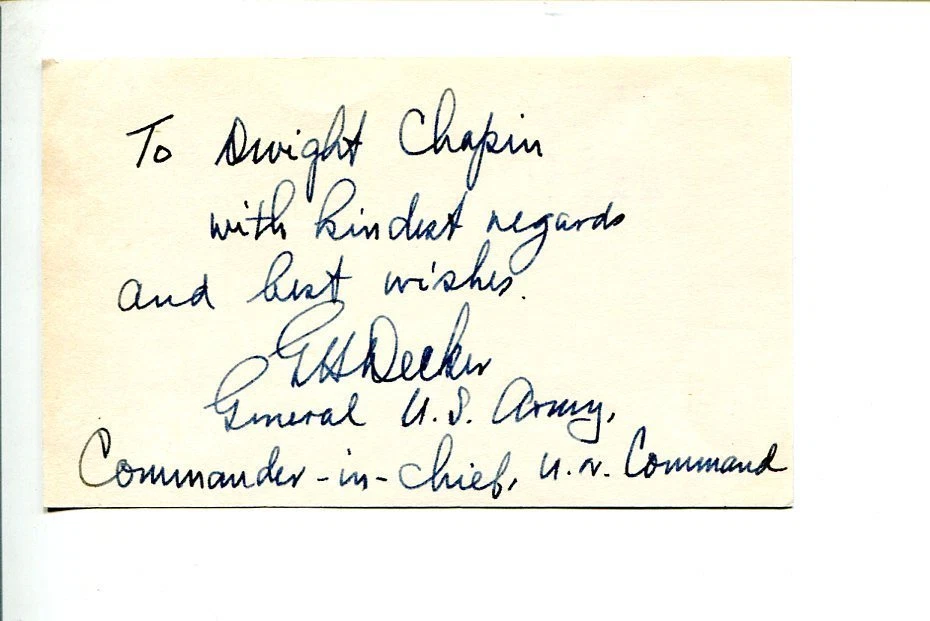 To Dwight Chapin
with kindest regards
and best wishes.
GHDecker
General U.S. Army,
Commander-in-Chief, U.N. Command